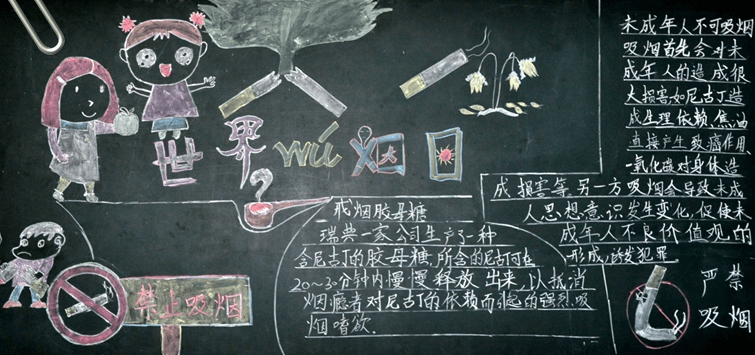 世界wú烟日
戒烟胶母糖
瑞典一家公司生产了一种
含尼古丁的胶母糖,所含的尼古丁可在
20~30分钟内慢慢释放出来,以抵消
烟瘾者对尼古丁的依赖而引起的强烈吸
烟嗜欲.
禁止吸烟
未成年人不可吸烟
吸烟首先会对未
成年人的造成很
大损害如尼古丁造
成生理依赖,焦油
直接产生致癌作用
一氧化碳对身体造
成损害等,另一方吸烟会导致未成
人思想意识发生变化,促使未
成年人不良价值观的
形成,诱发犯罪
严禁
吸烟